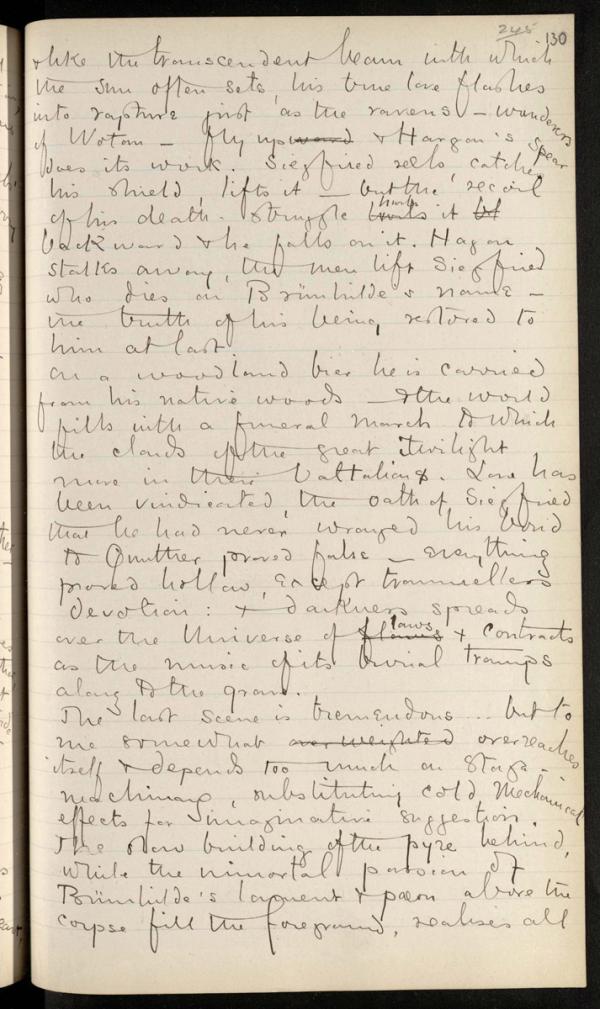 245 130
& like the transcendent beam with which
the sun often sets, his true love flashes
into rapture just as the ravens – wanderers
of Wotan – fly upward & Hargan's spear
does its work. Siegfried reels, catches
his shield, lifts it – but the recoil
of his death-struggle hurls it
backward & he falls on it. Hagan
stalks away, the men lift Siegfried
who dies on Brünhilde's name –
the truth of his being restored to
him at last.
On a woodland bier he is carried
from his native woods – & the world
fills with a funeral march to which
the clouds of the great Twilight
move in their battalions. Love has
been vindicated, the oath of Siegfried
that he had never wronged his bond
to Gunther proved false – everything
proved hollow, except trammelless
devotion: & darkness spreads
over the Universe of flaws laws & contracts
as the music of its burial tramps
along to the grave.
The last scene is tremendous ... but to
me somewhat over weighted overreaches
itself & depends too much on stage-
machinery, substituting cold mechanical
effects for imaginative suggestion.
The slow building of the pyre behind,
while the immortal passion of
Brünhilde's lament & pæon above the
corpse fill the foreground, realises all